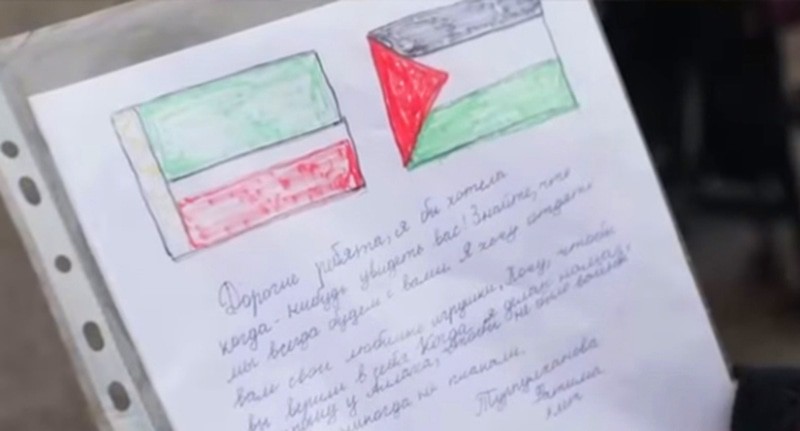 Дорогие ребята, я бы хотела
когда-нибудь увидеть вас! Знайте, что
мы всегда будем с вами. Я хочу отдать
вам свои любимые игрушки. Хочу, чтобы
вы верили в себя. Когда я делаю намаз,
у Аллаха, чтобы не было войны
никогда не плакали.
Фатима